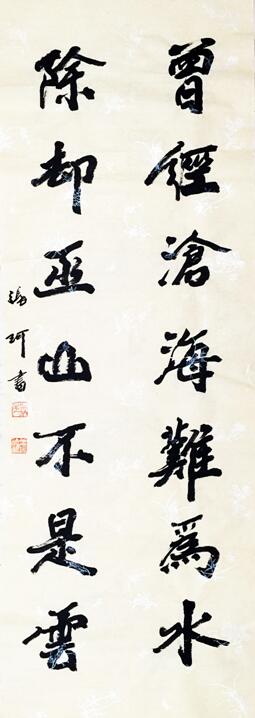 曾經滄海難為水
除却巫山不是雲
珂書